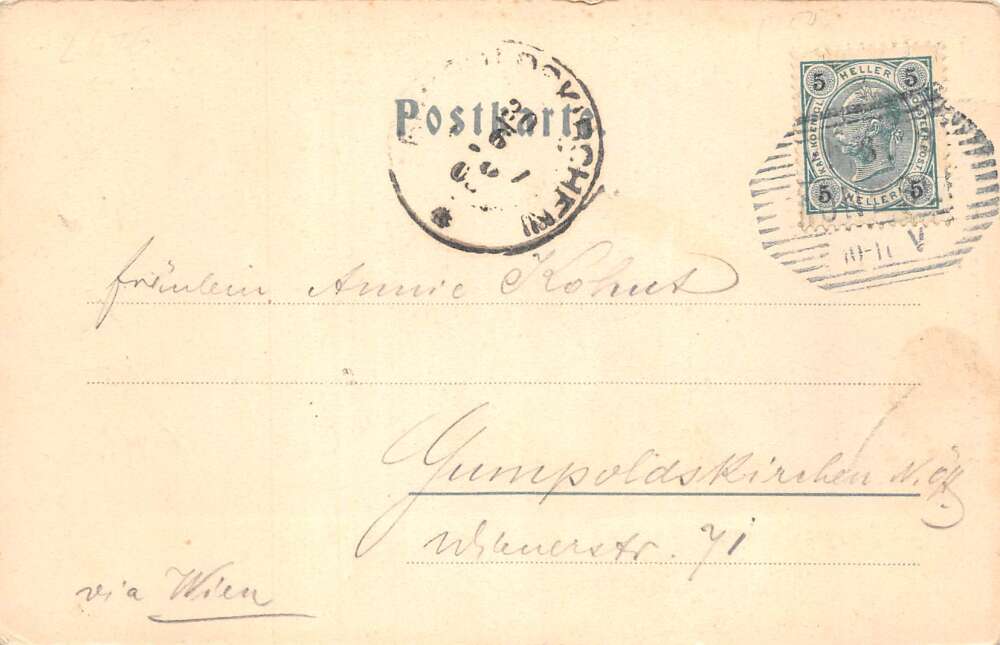 Postkarte.
5 HELLER 5
KAIS. KOENIGL. OESTERR. POST
5 HELLER 5
10-11 V
Fräulein Annie Kohut
Gumpoldskirchen N.Öst.
Wienerstr. 71
via Wien